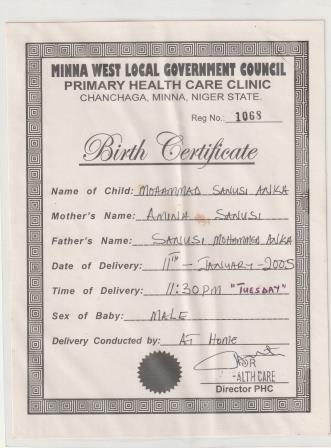 MINNA WEST LOCAL GOVERNMENT COUNCIL
PRIMARY HEALTH CARE CLINIC
CHANCHAGA, MINNA, NIGER STATE.
Reg No.: 1068
Birth Certificate
Name of Child: MOHAMMAD SANUSI ANKA
Mother's Name: AMINA SANUSI
Father's Name: SANUSI MOHAMMED ANKA
Date of Delivery: 11TH - JANUARY - 2005
Time of Delivery: 11:30PM "TUESDAY"
Sex of Baby: MALE
Delivery Conducted by: AT Home
OR
-ALTH CARE
Director PHC